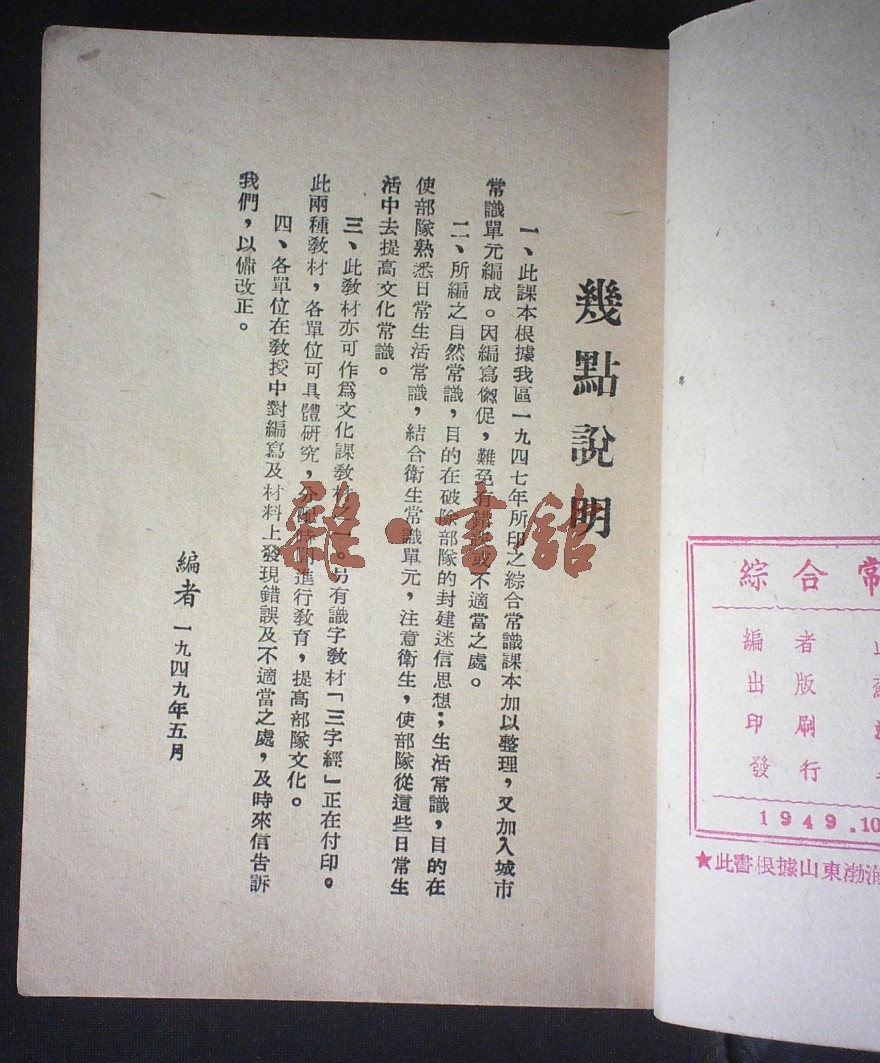 幾點說明
一、此課本根據我區一九四七年所印之綜合常識課本加以整理，又加入城市
常識單元編成。因編寫促，難免有錯或不適當之處。
二、所編之自然常識，目的在破除部隊的封建迷信思想；生活常識，目的在
使部隊熟悉日常生活常識，結合衛生常識單元，注意衛生，使部隊從這些日常生
活中去提高文化常識。
三、此教材亦可作爲文化課教材之一。另有識字教材「三字經」正在付印。
此兩種教材，各單位可具體研究，分配時間進行教育，提高部隊文化。
四、各單位在教授中對編寫及材料上發現錯誤及不適當之處，及時來信告訴
我們，以備改正。
編者 一九四九年五月
雜·書館
綜合常
編者
出版
印刷
發行
1949.10
★此書根據山東渤海